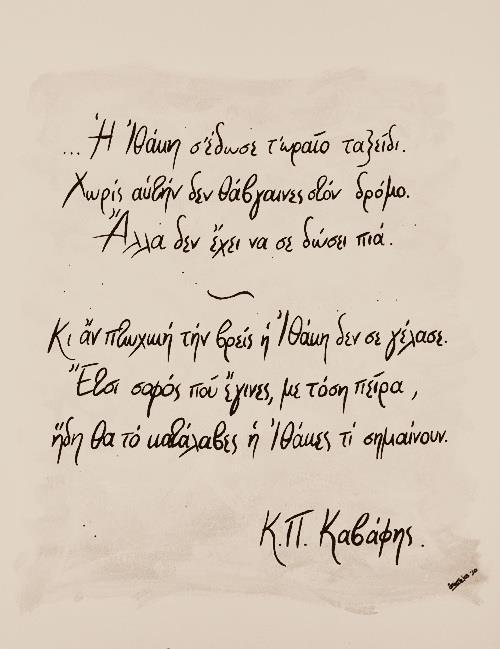 ... Ἡ Ἰθάκη σ'έδωσε τ'ωραῖο ταξείδι.
Χωρίς αὐτήν δεν θάβγαινες στόν δρόμο.
Ἄλλα δεν ἔχει να σε δώσει πιά.
Κι ἄν πτωχική τήν βρεῖς ἡ Ἰθάκη δεν σε γέλασε.
Ἔτσι σοφός πού ἔγινες, με τόση πεῖρα,
ἤδη θα τό κατάλαβες ἡ Ἰθάκες τί σημαίνουν.
Κ.Π. Καβάφης.